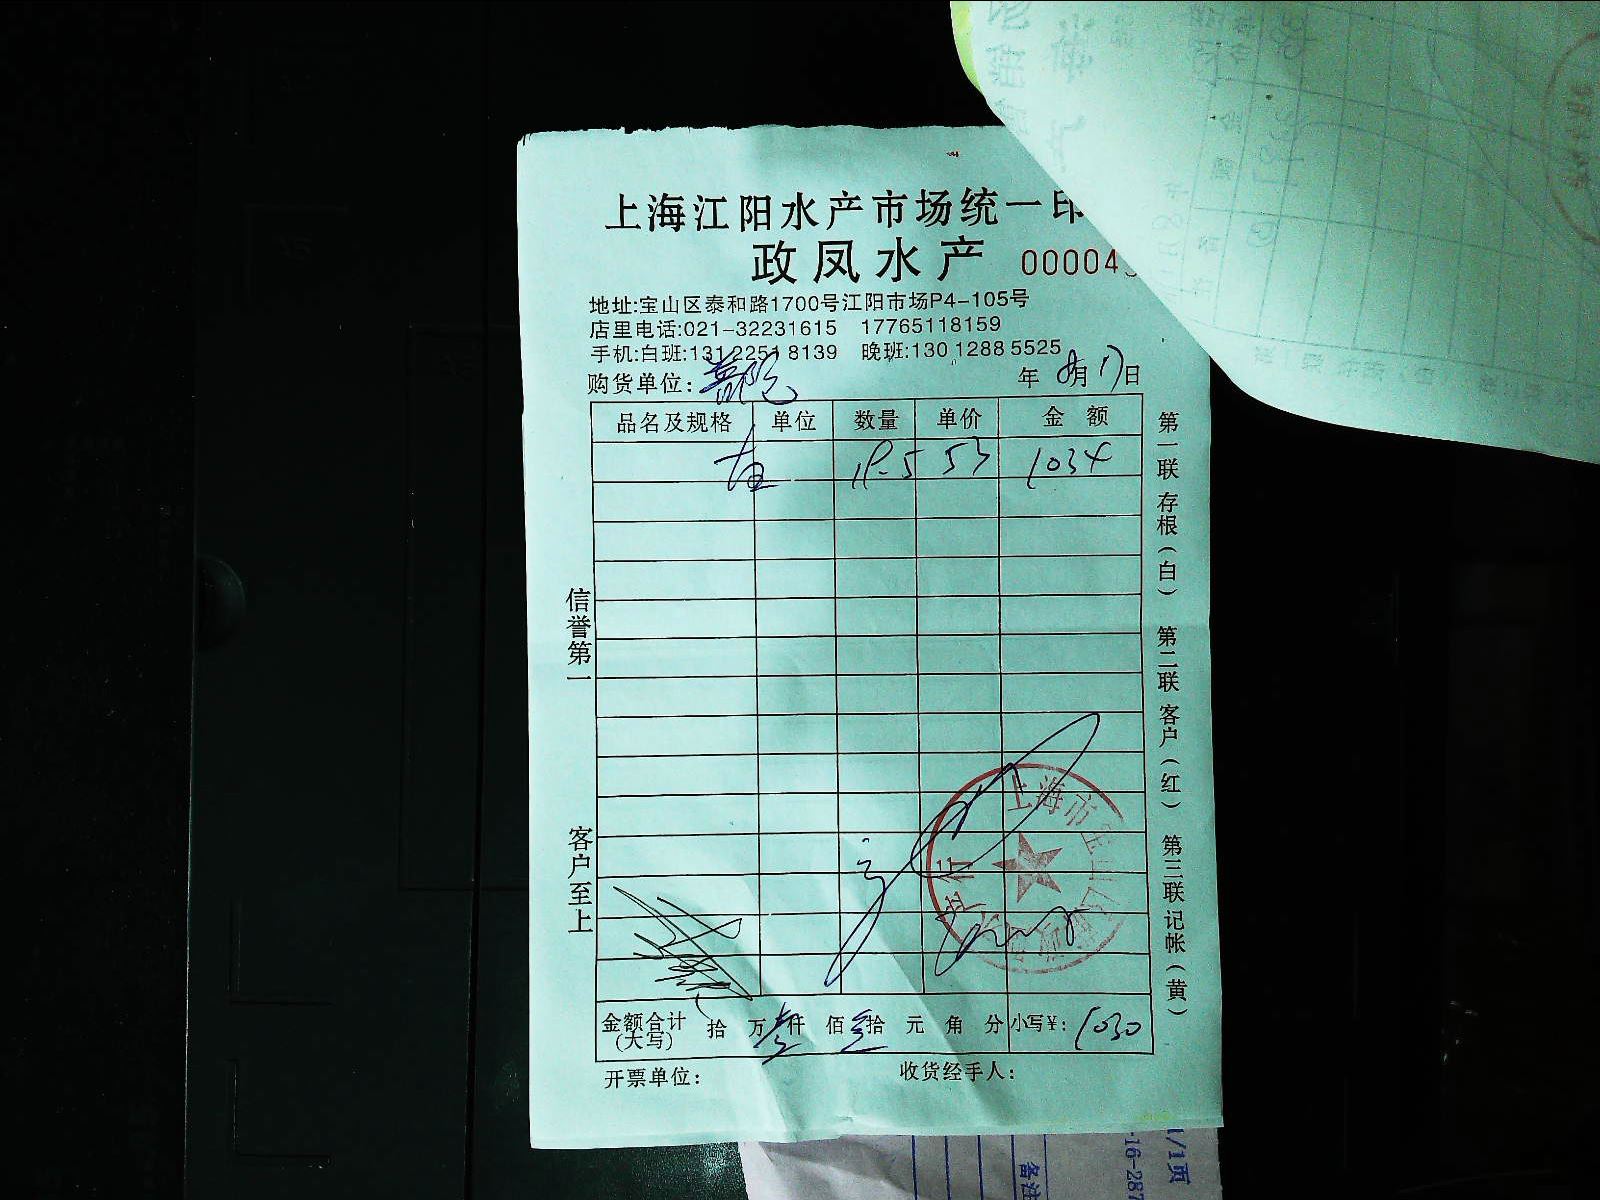 上海江阳水产市场统一印
政凤水产 00004
地址:宝山区泰和路1700号江阳市场P4-105号
店里电话:021-32231615 17765118159
手机:白班:13122518139 晚班:13012885525
购货单位: 年8月17日
品名及规格 单位 数量 单价 金额
18.5 53 1034
信誉第一
客户至上
第一联存根(白) 第二联客户(红) 第三联记帐(黄)
上海市宝山区
金额合计(大写) 拾 万壹仟 佰叁拾 元 角 分 小写¥: 1030
开票单位: 收货经手人:
1/1页
-16-287
备注